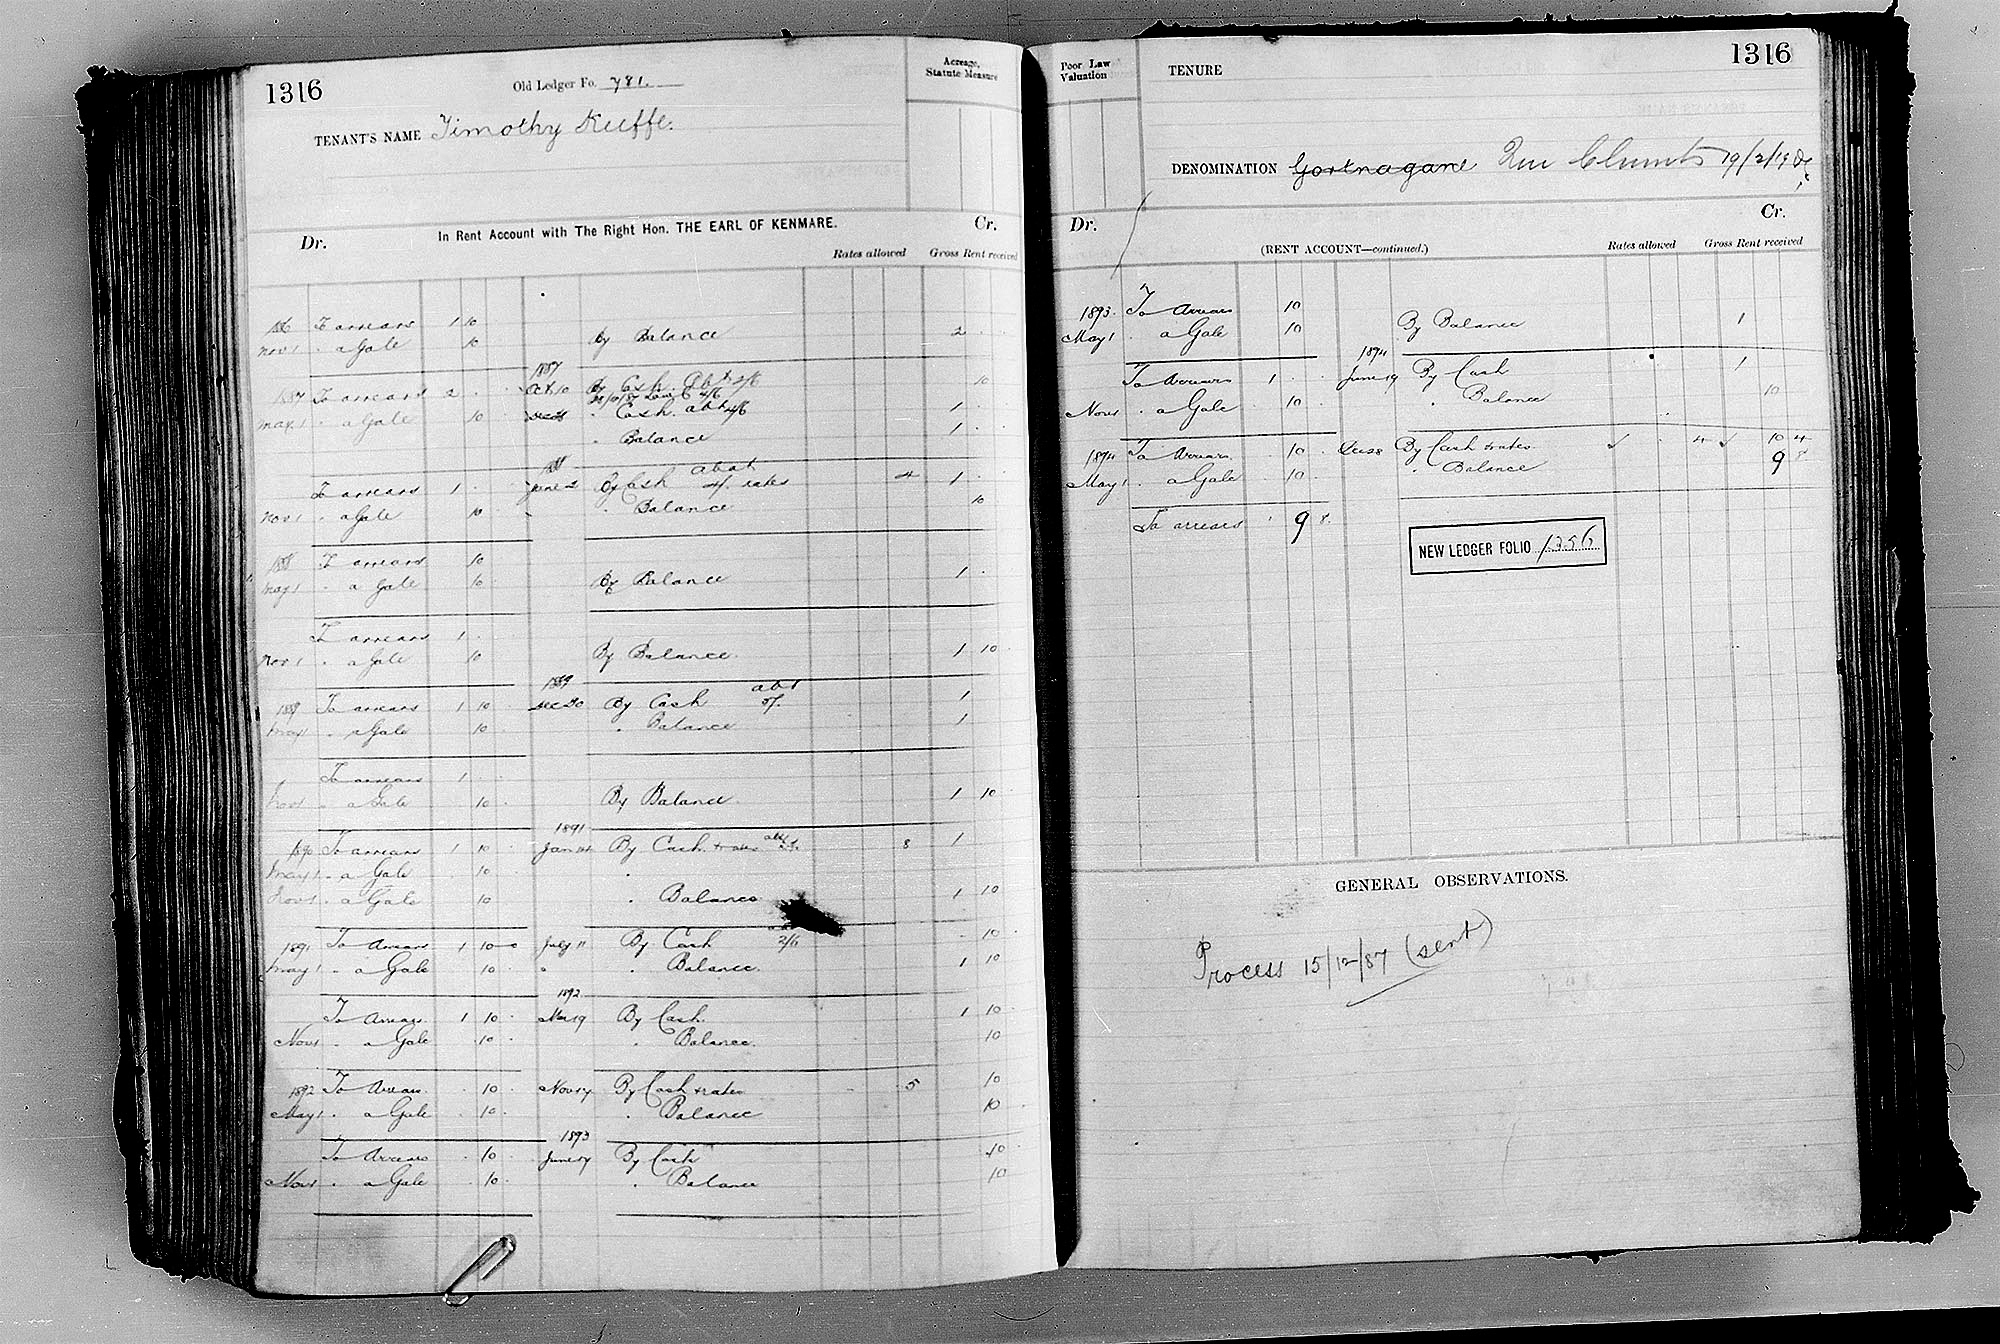 1316
Old Ledger Fo. 781.
Acreage, Statute Measure
TENANT'S NAME Timothy Keeffe.
In Rent Account with The Right Hon. THE EARL OF KENMARE.
Dr. Cr.
Rates allowed Gross Rent received
1886 To arrears 1 10
Nov 1 . a Gale 10 By Balance 2 . .
1887
1887 To arrears 2 . . Oct 10 By Cash Abt 2/6 10
May 1 . a Gale 10 . Cash abt 4/6 1 .
. Balance 1 . .
1888 abat
To arrears 1 . June 2 By Cash 4/. rates 4 1 .
Nov 1 . a Gale 10 . Balance 10
1888 To arrears 10
May 1 . a Gale 10 By Balance 1 .
To arrears 1 .
Nov 1 . a Gale 10 By Balance 1 10 .
1889 abt
1889 To arrears 1 10 Dec 20 By Cash 5/. 1
May 1 . a Gale 10 . Balance 1
To arrears 1 . .
Nov 1 . a Gale 10 . By Balance 1 10
1891
1890 To arrears 1 10 Jan By Cash & rates abt 8 1
May 1 . a Gale . 10
Nov 1 . a Gale 10 . Balance 1 10
1891 To Arrears 1 10 July 11 By Cash 2/6 10
May 1 . a Gale 10 . Balance. 1 10
1892
To Arrears 1 10 Mar 19 By Cash. 1 10
Nov 1 . a Gale 10 . Balance. 10
1892 To Arrears . 10 Nov 17 By Cash & rates 5 10
May 1 . a Gale . 10 . . Balance 10
1893
To Arrears . 10 June 17 By Cash 10
Nov 1 . a Gale . 10 . . Balance 10
1316
Poor Law Valuation
TENURE
DENOMINATION Gortnagane 19/2/19
Dr. Cr.
(RENT ACCOUNT—continued.)
Rates allowed Gross Rent received
1893. To Arrears 10
May 1 . a Gale 10 By Balance 1
1894
To Arrears 1 . . June 19 By Cash 1
Nov 1 . a Gale 10 . . Balance 10
1894 To Arrears 10 . Dec 28 By Cash & rates 4 10 4
May 1 . a Gale 10 . . Balance 9 8
To arrears 9 8.
NEW LEDGER FOLIO 1256
GENERAL OBSERVATIONS.
Process 15/12/87 (sent)